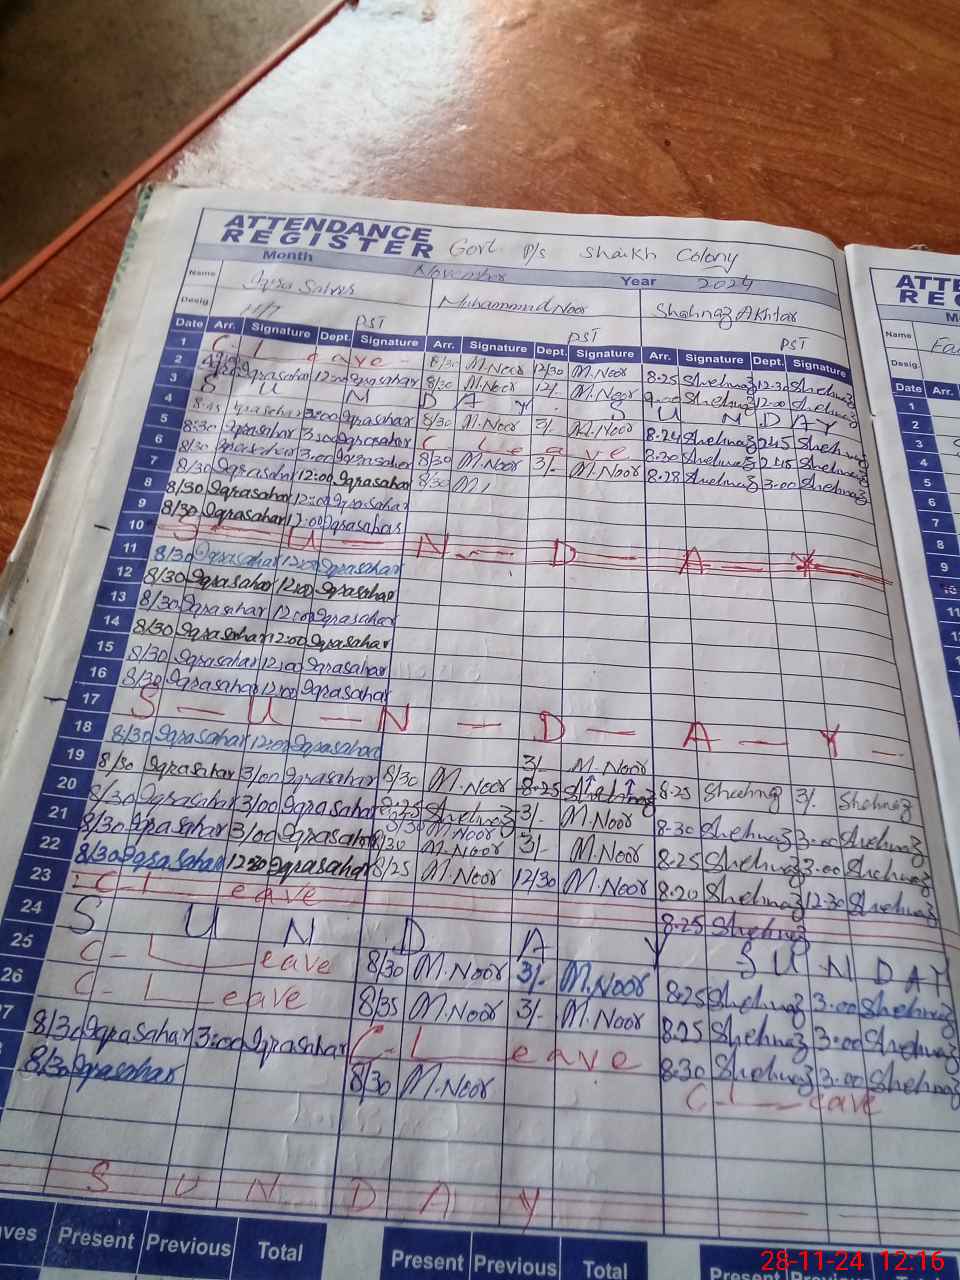 ATTENDANCE
REGISTER Govt P/s Shaikh Colony
Month November Year 2024
Name Iqra Sahris Muhammad Noor Shehnaz Akhtar
Desig. PST PST PST
Date Arr. Signature Dept. Signature Arr. Signature Dept. Signature Arr. Signature Dept. Signature
1 C-Leave 8/30 M.Noor 12/30 M.Noor 8.25 Shehnaz 12.30 Shehnaz
2 Iqrasahar 12:00 Iqrasahar 8/30 M.Noor 12/. M.Noor 9.00 Shehnaz 12.00 Shehnaz
3 S U N D A Y S U N D A Y
4 8:25 Iqrasahar 3:00 Iqrasahar 8/30 M.Noor 3/. M.Noor 8.24 Shehnaz 2.45 Shehnaz
5 8:30 Iqrasahar 3:00 Iqrasahar C Leave 8.20 Shehnaz 2.45 Shehnaz
6 8/30 Iqrasahar 3:00 Iqrasahar 8/30 M.Noor 3/- M.Noor 8.28 Shehnaz 3.00 Shehnaz
7 8/30 Iqrasahar 12:00 Iqrasahar 8/30 M
8 8/30 Iqrasahar 12:00 Iqrasahar
9 8/30 Iqrasahar 12:00 Iqrasahar
10 S U N D A Y
11 8/30 Iqrasahar 12:00 Iqrasahar
12 8/30 Iqrasahar 12:00 Iqrasahar
13 8/30 Iqrasahar 12:00 Iqrasahar
14 8/30 Iqrasahar 12:00 Iqrasahar
15 8/30 Iqrasahar 12:00 Iqrasahar
16 8/30 Iqrasahar 12:00 Iqrasahar
17 S U N D A Y
18 8/30 Iqrasahar 12:00 Iqrasahar 3/- M.Noor
19 8/30 Iqrasahar 3/00 Iqrasahar 8/30 M.Noor 8.25 Shehnaz 8.25 Shehnaz 3/. Shehnaz
20 8/30 Iqrasahar 3/00 Iqrasahar 8.25 Shehnaz 8/30 M.Noor 3/- M.Noor 8.30 Shehnaz 3.00 Shehnaz
21 8/30 Iqrasahar 3/00 Iqrasahar 8/30 M.Noor 3/- M.Noor 8.25 Shehnaz 3.00 Shehnaz
22 8/30 Iqrasahar 12:30 Iqrasahar 8/25 M.Noor 12/30 M.Noor 8.20 Shehnaz 12.30 Shehnaz
23 C-L eave 8.25 Shehnaz
24 S U N D A Y S U N D A Y
25 C-Leave 8/30 M.Noor 3/- M.Noor 8.25 Shehnaz 3.00 Shehnaz
26 C-Leave 8/35 M.Noor 3/- M.Noor 8.25 Shehnaz 3.00 Shehnaz
7 8/30 Iqrasahar 3:00 Iqrasahar C-Leave 8.30 Shehnaz 3.00 Shehnaz
8/30 Iqrasahar 8/30 M.Noor C-Leave
S U N D A Y
ves Present Previous Total Present Previous Total Present Previous
ATT
RE
Name
Desig.
Date Arr.
1
2
3
4
5
6
7
8
9
10
11
12
28-11-24 12:16